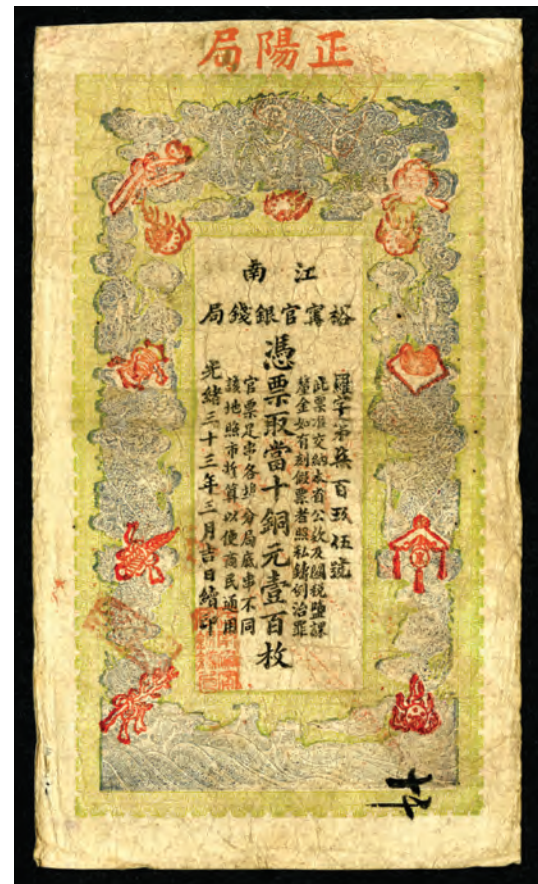 正陽局
江南
裕寧官銀錢局
羅字第柒百玖伍號
此票准交納本省公款及關稅鹽課
釐金如有刻假票者照私鑄例治罪
憑票取當十銅元壹百枚
官票足串各埠分局底串不同
該地照市折算以便商民通用
光緒三十三年三月吉日繪印